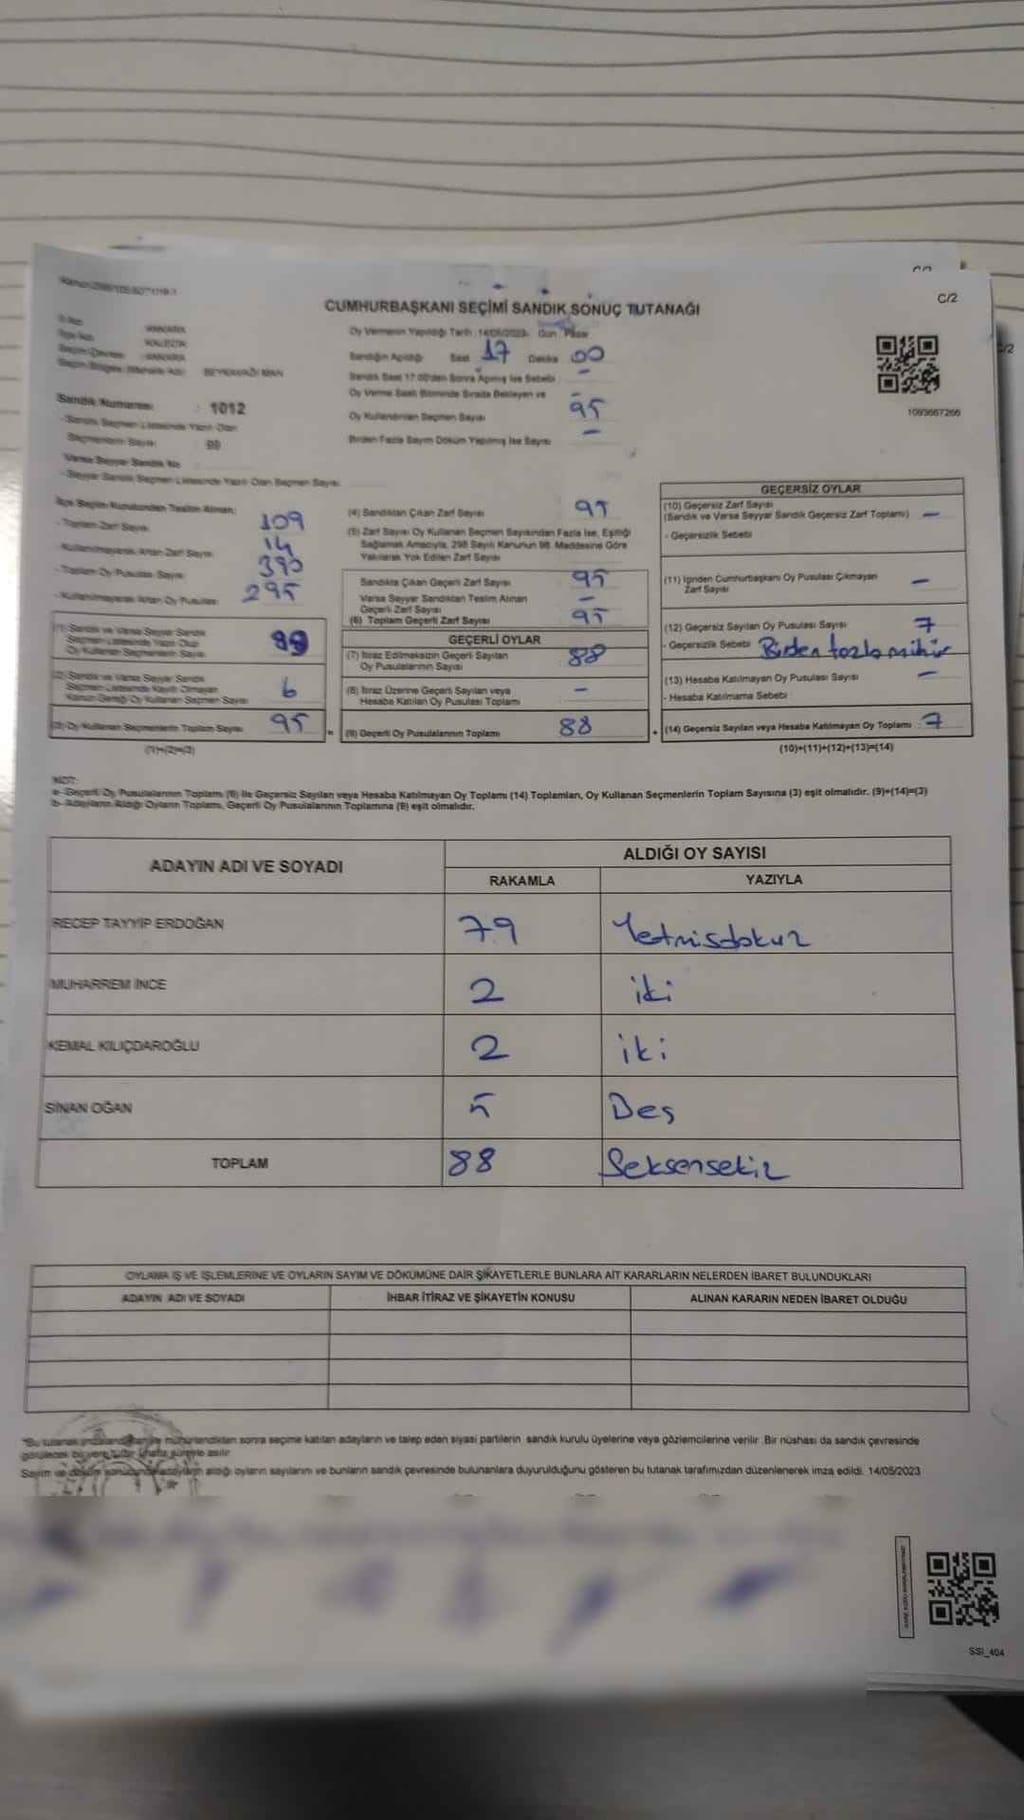 C/2
CUMHURBAŞKANI SEÇİMİ SANDIK SONUÇ TUTANAĞI
Oy Vermenin Yapıldığı Tarih :14/05/2023 Gün : Pazar
Sandığın Açıldığı Saat 17 Dakika 00
Sandık Saat 17.00'den Sonra Açılmış İse Sebebi : -
Oy Verme Saati Bitiminde Sırada Bekleyen ve -
Oy Kullandırılan Seçmen Sayısı 95
Birden Fazla Sayım Döküm Yapılmış İse Sayısı -
1093667266
ANKARA
ANKARA
Sandık Numarası : 1012
-Sandık Seçmen Listesinde Yazılı Olan
Seçmenlerin Sayısı 99
Varsa Seyyar Sandık No
-Seyyar Sandık Seçmen Listesinde Yazılı Olan Seçmen Sayısı
İlçe Seçim Kurulundan Teslim Alınan;
- Toplam Zarf Sayısı 109
-Kullanılmayarak Artan Zarf Sayısı 14
- Toplam Oy Pusulası Sayısı 390
- Kullanılmayarak Artan Oy Pusulası 295
(1) Sandık ve Varsa Seyyar Sandık
Seçmen Listesinde Yazılı Olup
Oy Kullanan Seçmenlerin Sayısı
(2) Sandık ve Varsa Seyyar Sandık
Seçmen Listesinde Kayıtlı Olmayan
Kanun Gereği Oy Kullanan Seçmen Sayısı 6
(3) Oy Kullanan Seçmenlerin Toplam Sayısı 95
(1)+(2)=(3)
(4) Sandıktan Çıkan Zarf Sayısı 95
(5) Zarf Sayısı Oy Kullanan Seçmen Sayısından Fazla İse, Eşitliği
Sağlamak Amacıyla, 298 Sayılı Kanunun 98. Maddesine Göre
Yakılarak Yok Edilen Zarf Sayısı
Sandıkta Çıkan Geçerli Zarf Sayısı 95
Varsa Seyyar Sandıktan Teslim Alınan
Geçerli Zarf Sayısı -
(6) Toplam Geçerli Zarf Sayısı 95
GEÇERLİ OYLAR
(7) İtiraz Edilmeksizin Geçerli Sayılan
Oy Pusulalarının Sayısı 88
(8) İtiraz Üzerine Geçerli Sayılan veya
Hesaba Katılan Oy Pusulası Toplamı -
=
(9) Geçerli Oy Pusulalarının Toplamı 88
+
GEÇERSİZ OYLAR
(10) Geçersiz Zarf Sayısı
(Sandık ve Varsa Seyyar Sandık Geçersiz Zarf Toplamı) -
- Geçersizlik Sebebi
(11) İçinden Cumhurbaşkanı Oy Pusulası Çıkmayan
Zarf Sayısı -
(12) Geçersiz Sayılan Oy Pusulası Sayısı 7
- Geçersizlik Sebebi Birden fazla mühür
(13) Hesaba Katılmayan Oy Pusulası Sayısı -
- Hesaba Katılmama Sebebi
(14) Geçersiz Sayılan veya Hesaba Katılmayan Oy Toplamı 7
(10)+(11)+(12)+(13)=(14)
NOT:
a- Geçerli Oy Pusulalarının Toplamı (9) ile Geçersiz Sayılan veya Hesaba Katılmayan Oy Toplamı (14) Toplamları, Oy Kullanan Seçmenlerin Toplam Sayısına (3) eşit olmalıdır. (9)+(14)=(3)
b- Adayların Aldığı Oyların Toplamı, Geçerli Oy Pusulalarının Toplamına (9) eşit olmalıdır.
ADAYIN ADI VE SOYADI
ALDIĞI OY SAYISI
RAKAMLA YAZIYLA
RECEP TAYYİP ERDOĞAN 79 Yetmisdokuz
MUHARREM İNCE 2 iki
KEMAL KILIÇDAROĞLU 2 iki
SİNAN OĞAN 5 Beş
TOPLAM 88 Seksensekiz
OYLAMA İŞ VE İŞLEMLERİNE VE OYLARIN SAYIM VE DÖKÜMÜNE DAİR ŞİKAYETLERLE BUNLARA AİT KARARLARIN NELERDEN İBARET BULUNDUKLARI
ADAYIN ADI VE SOYADI İHBAR İTİRAZ VE ŞİKAYETİN KONUSU ALINAN KARARIN NEDEN İBARET OLDUĞU
*Bu tutanak imzalandıktan ve mühürlendikten sonra seçime katılan adayların ve talep eden siyasi partilerin sandık kurulu üyelerine veya gözlemcilerine verilir. Bir nüshası da sandık çevresinde
görülecek bir yere bir hafta süreyle asılır
Sayım ve döküm sonucunda adayların aldığı oyların sayılarını ve bunların sandık çevresinde bulunanlara duyurulduğunu gösteren bu tutanak tarafımızdan düzenlenerek imza edildi. 14/05/2023
SSI_404